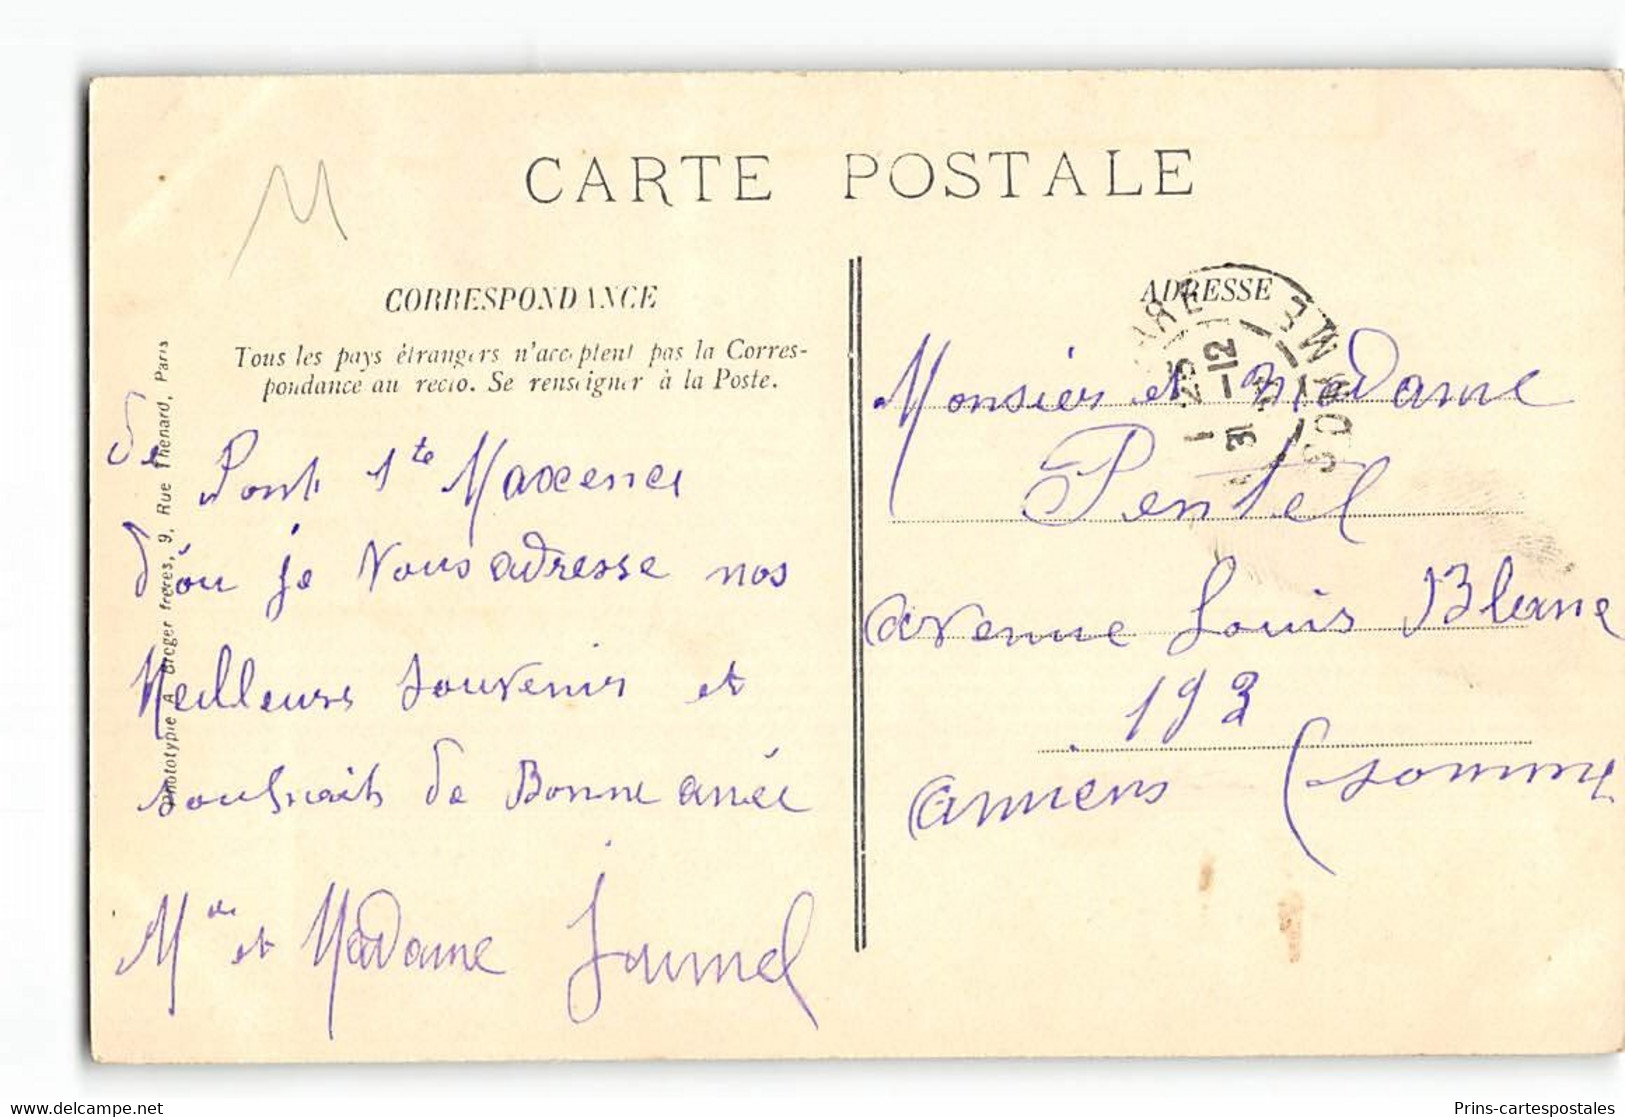 CARTE POSTALE
CORRESPONDANCE
Tous les pays étrangers n'acceptent pas la Corres-
pondance au recto. Se renseigner à la Poste.
Phototypie A. Breger frères, 9, Rue Thenard, Paris
de
Pont Ste Maxence
d'ou je vous adresse nos
Meilleurs souvenir et
souhaits de Bonne anée
Mr et Madame
ADRESSE
GARE
SOMME
1 25
31 -12
Monsier et Madame
Pentel
avenue Louis Blanc
193
amiens (somme
delcampe.net
Prins-cartespostales